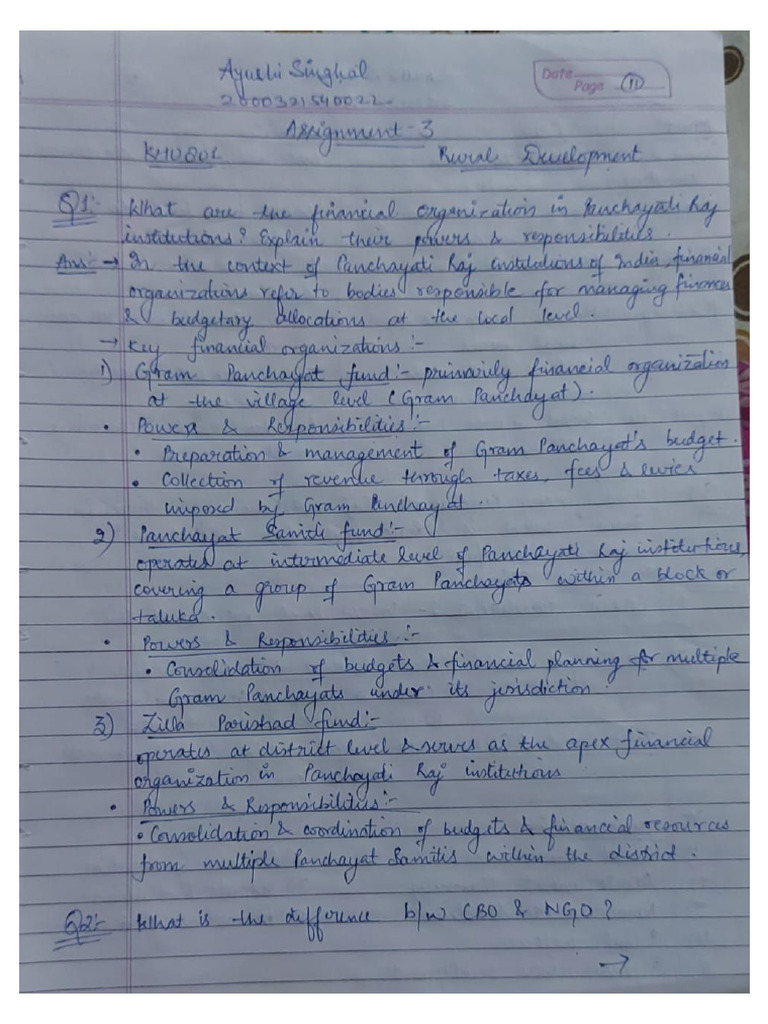 Ayushi Singhal
Date
Page 11
2000321540022
Assignment-3
KHU801 Rural Development
Q1:- What are the financial organization in Panchayati Raj
institutions? Explain their powers & responsibilities.
Ans:- → In the context of Panchayati Raj institutions of India, financial
organizations refer to bodies responsible for managing finances
& budgetary allocations at the local level.
→ Key financial organizations:-
1) Gram Panchayat fund:- primarily financial organization
at the village level (Gram Panchayat).
• Powers & Responsibilities:-
• Preparation & management of Gram Panchayat's budget.
• Collection of revenue through taxes, fees & levies
imposed by Gram Panchayat.
2) Panchayat Samiti fund:-
operates at intermediate level of Panchayati Raj institutions,
covering a group of Gram Panchayats within a block or
taluka.
• Powers & Responsibilities:-
• Consolidation of budgets & financial planning for multiple
Gram Panchayats under its jurisdiction.
3) Zilla Parishad fund:-
operates at district level & serves as the apex financial
organization in Panchayati Raj institutions
• Powers & Responsibilities:-
• Consolidation & coordination of budgets & financial resources
from multiple Panchayat Samitis within the district.
Q2:- What is the difference b/w CBO & NGO?
→